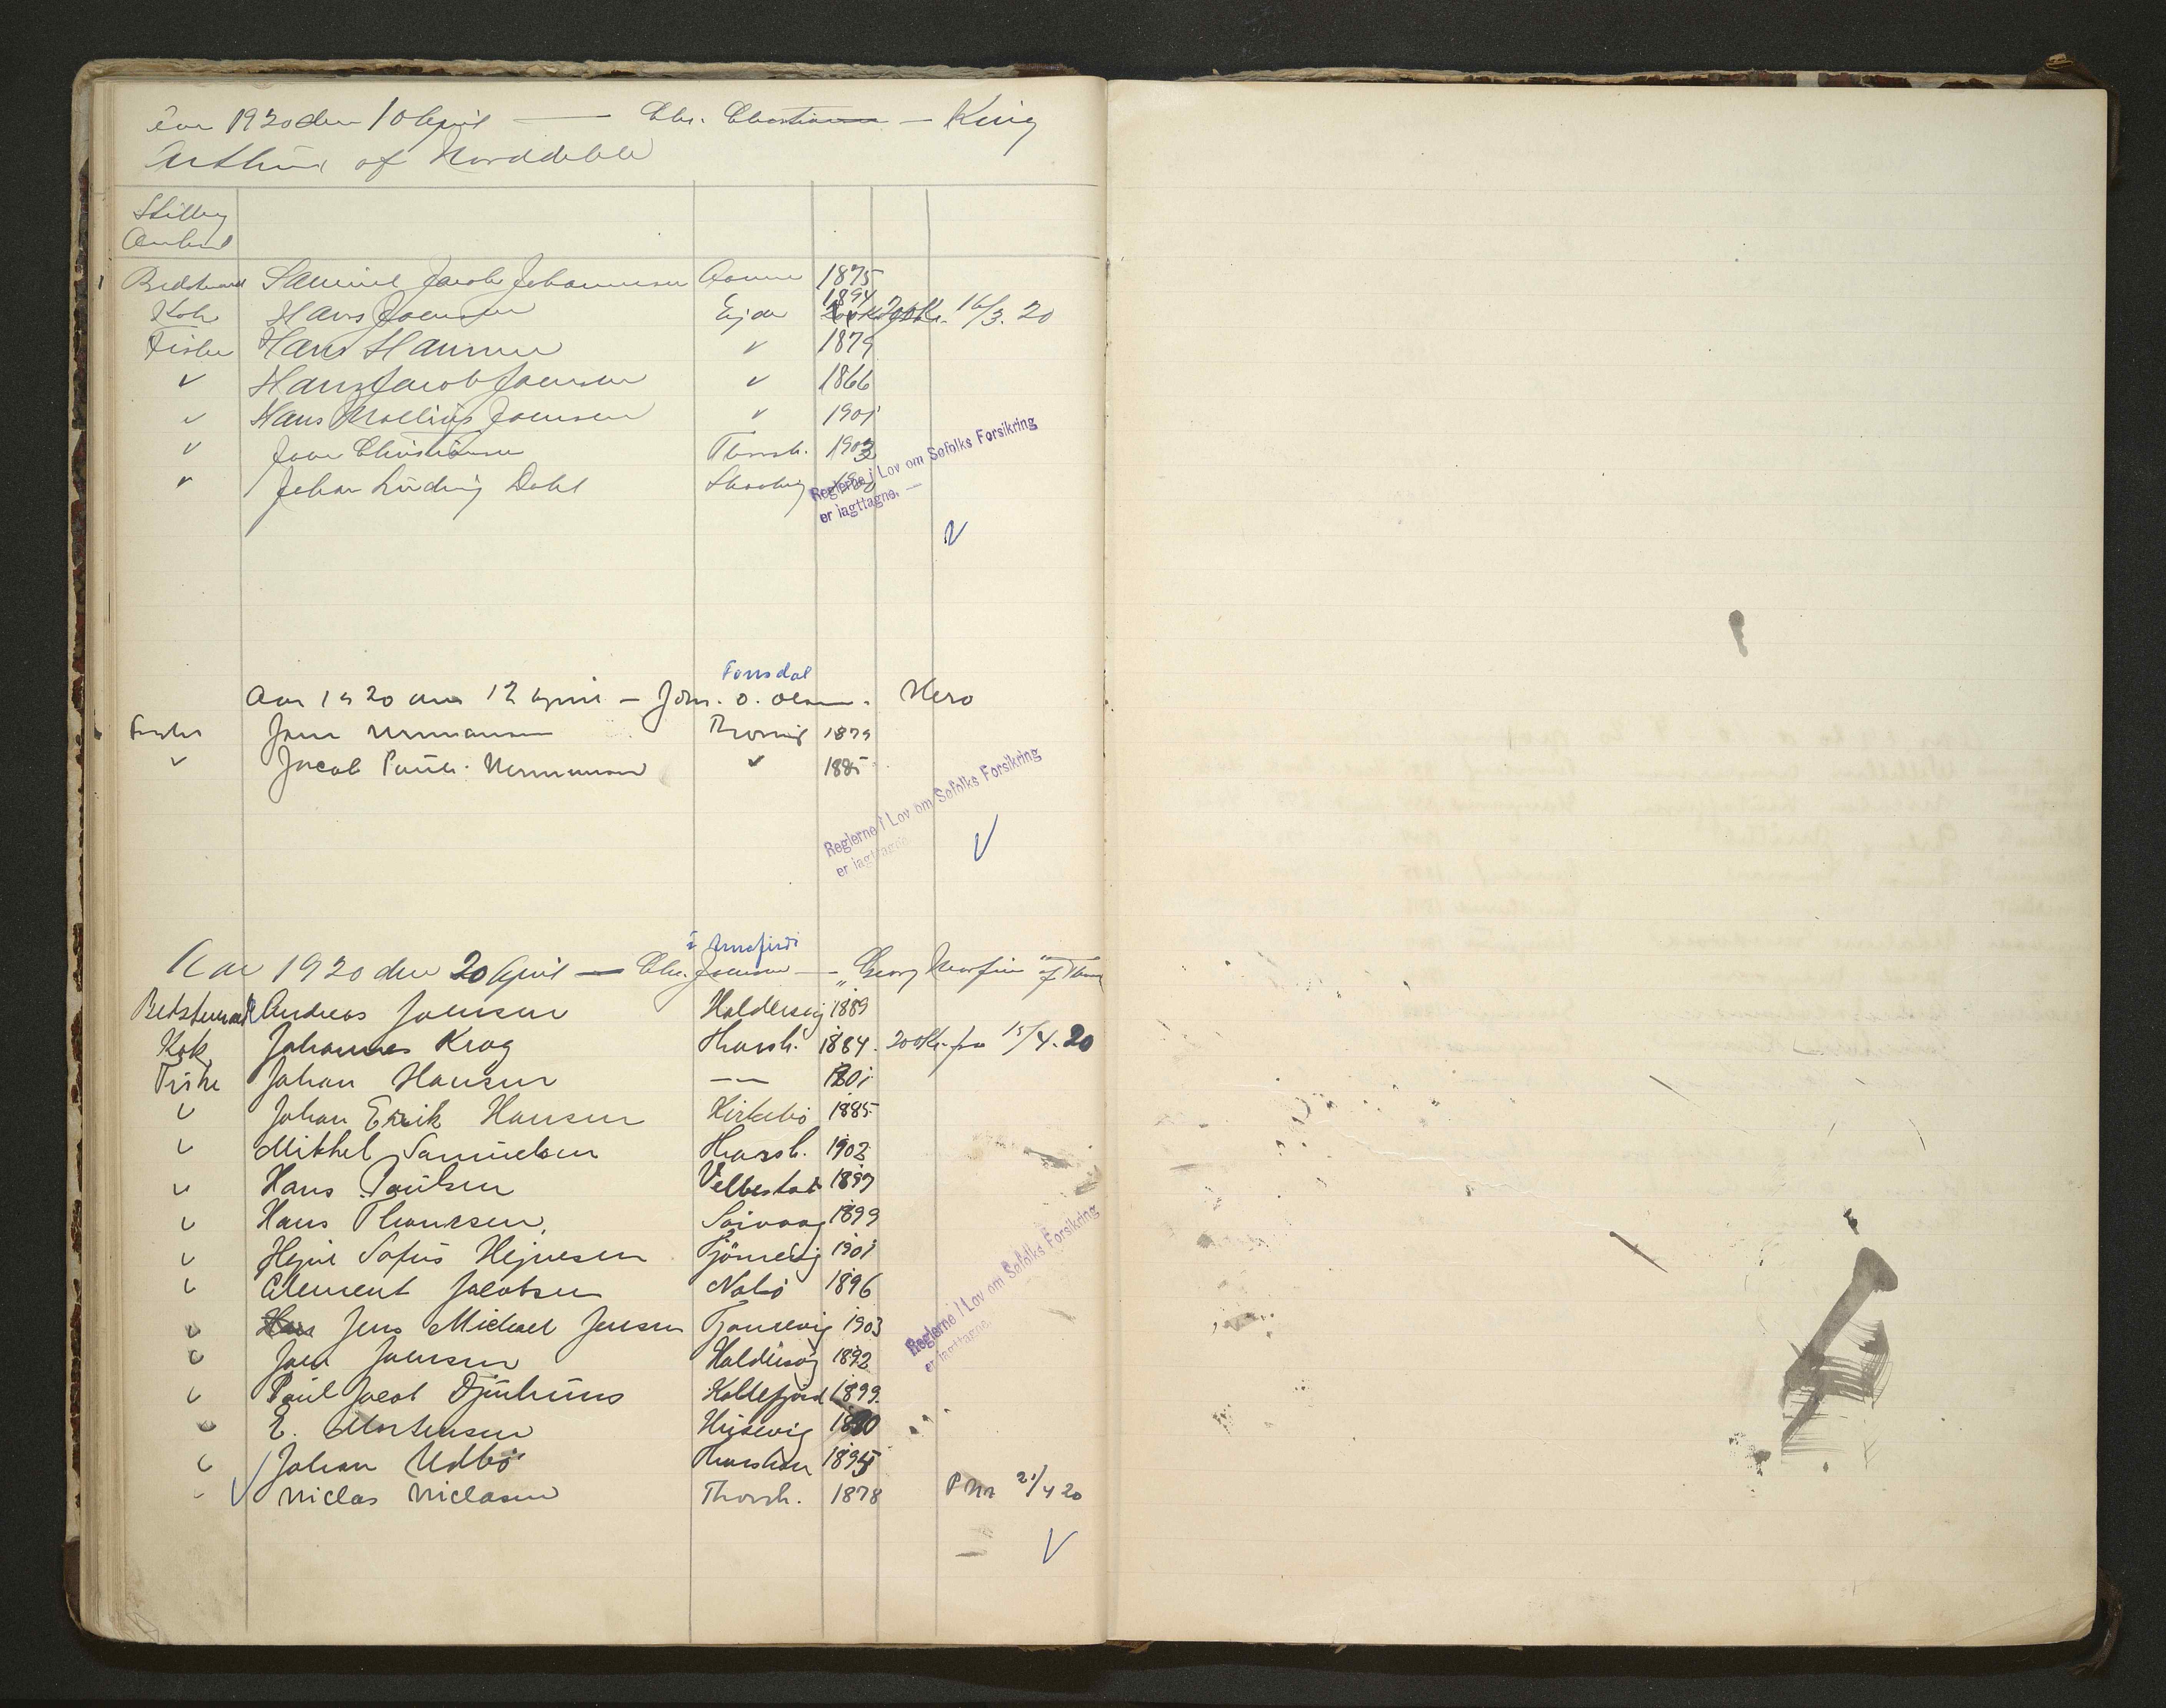 Aar 1920 den 10 April — Chr. Christiansen — King
Arthur of Norddeble
Stilling
Antal
Bedstmand Samuel Jacob Johannesen 1875
Kok Hans Joensen Ejde 1894 200 Kr. 16/3. 20
Fisker Hans Hammer v 1879
v Hans Jacob Joensen v 1866
v Hans Joensen v 1901
v Joen Christiansen Thorsh. 1903
v Johan Ludvig Dahl
Reglerne i Lov om Søfolks Forsikring
er iagttagne. —
V
Fonsdal
Aar 1920 den 12 April — Joh. O. Olsen. Hero
Fisker 1879
v Jacob 1885
Reglerne i Lov om Søfolks Forsikring
er iagttagne
V
i
Aar 1920 den 20 April — Chr. Joensen — "Georg
Bedstemand Andreas Joensen Haldersvig 1889
Kok Johannes Krog Thorsh. 1884. 200 Kr. fra 15/4. 20
Fiske Johan Hansen —— 1901
v Johan Erik Hansen Kirkebø 1885
v Mikkel Samuelsen Thorsh. 1902
v Hans Poulsen Velbestad 1897
v Hans Thomsen 1899
v Hejni Sofus Hejnesen Tjörnevig 1901
v Clement Jacobsen Nolsö 1896
v Jens Michael Jensen Tjörnevig 1903
v Joen Joensen Haldersvig 1892
v Poul Jacob Djurhuus Kollefjord 1899.
v E. Mortensen Húsevig
v Johan Udbø Thorshavn 1895
v Niclas Niclasen Thorsh. 1878 21/4 20
Reglerne i Lov om Søfolks Forsikring
er iagttagne.
V